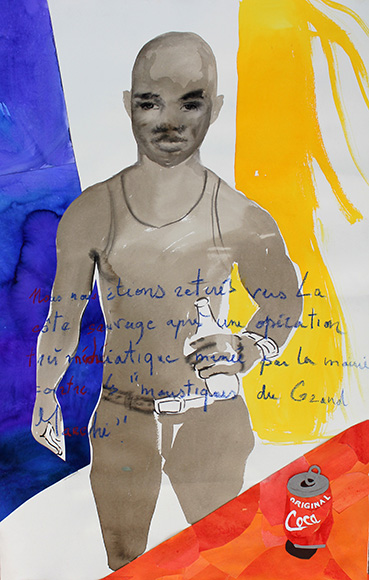 Nous nous étions retirés vers La
côte sauvage après une opération
menée par la mairie
contre les "moustiques du Grand
Marché"
ORIGINAL
Coca